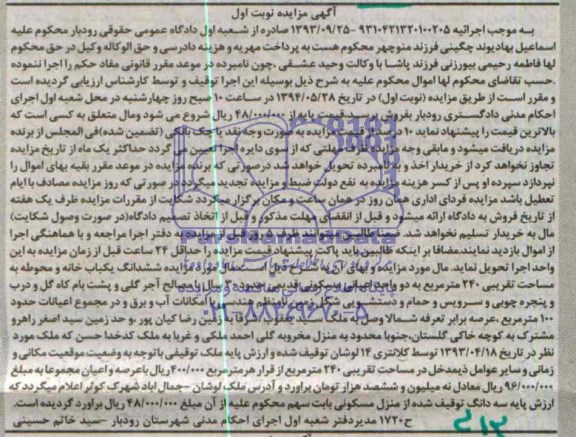 آگهی مزایده نوبت اول
به موجب اجرائیه ۹۳۱۰۴۲۱۳۲۰۱۰۰۲۰۵ –۱۳۹۳/۰۹/۲۵ صادره از شعبه اول دادگاه عمومی حقوقی رودبار محکوم علیه
اسماعیل بهادیوند چگینی فرزند منوچهر محکوم هست به پرداخت مهریه و هزینه دادرسی و حق الوکاله وکیل در حق محکوم
لها فاطمه رحیمی بیورزنی فرزند پاشا با وکالت وحید عشقی ،چون نامبرده در موعد مقرر قانونی مفاد حکم را اجرا ننموده
.حسب تقاضای محکوم لها اموال محکوم علیه به شرح ذیل بوسیله این اجرا توقیف و توسط کارشناس ارزیابی گردیده است
و مقرر است از طریق مزایده (نوبت اول) در تاریخ ۱۳۹۴/۰۵/۲۸ در ساعت ۱۰ صبح روز چهارشنبه در محل شعبه اول اجرای
احکام مدنی دادگستری رودبار بفروش برسد.قیمت پایه از ۴۸/۰۰۰/۰۰۰ ریال شروع می شود ومال متعلق به کسی است که
بالاترین قیمت را پیشنهاد نماید ۱۰ درصد از قیمت مزایده به صورت وجه نقد یا چک بانکی (تضمین شده)فی المجلس از برنده
مزایده دریافت میشود و مابقی وجه مزایده طی مهلتی که از سوی دایره اجرا تعیین می گردد حداکثر یک ماه از تاریخ مزایده
تجاوز نخواهد کرد از خریدار اخذ و به نامبرده تحویل خواهد شد درصورتی که برنده مزایده در موعد مقرر بقیه بهای اموال را
نپردازد سپرده او پس از کسر هزینه مزایده به نفع دولت ضبط و مزایده تجدید میگردد در صورتی که روز مزایده مصادف با ایام
تعطیل باشد مزایده فردای اداری همان روز در همان ساعت و مکان برگزار میگردد شکایت از مقررات مزایده ظرف یک هفته
از تاریخ فروش به دادگاه ارائه میشود و قبل از انقضای مهلت مذکور و قبل از اتخاذ تصمیم دادگاه(در صورت وصول شکایت)
مال به خریدار تسلیم نخواهد شد. ضمنا طالبین میتوانند ظرف ۵ روز قبل از مزایده به دفتر اجرا مراجعه و با هماهنگی اجرا
از اموال بازدید نمایند.مضافا بر اینکه طالبین باید پاکت پیشنهاد قیمت مزایده را حداقل ۲۴ ساعت قبل از زمان مزایده به این
واحد اجرا تحویل نماید. مال مورد مزایده و بهای پایه به شرح ذیل است: مال مورد مزایده ششدانگ یکباب خانه و محوطه به
مساحت تقریبی ۲۴۰ مترمربع به دو واحد مسکونی قدیمی مصالح آجر گلی و پشت بام کاه گل و درب
و پنجره چوبی و سرویس و حمام و دستشویی شکل زمین نامنظم هندسی با امکانات آب و برق و در مجموع اعیانات حدود
۱۰۰ مترمربع ،عرصه برابر تعرفه شمالا وصل به ملک سید رضا کیان پور ،و حد زمین سید اصغر راهرو
مشترک به کوچه خاکی گلستان،جنوبا محدود به منزل مخروبه گلی احمد ملکی و غربا به ملک کدخدا حسن که ملک مورد
نظر در تاریخ ۱۳۹۳/۰۴/۱۸ توسط کلانتری ۱۴ لوشان توقیف شده و ارزش پایه ملک توقیفی باتوجه به وضعیت موقعیت مکانی و
زمانی و سایر عوامل ذیمدخل در مساحت تقریبی ۲۴۰ مترمربع از قرار هرمترمربع ۴۰۰/۰۰۰ ریال باعرصه و اعیان مجموعا به مبلغ
۹۶/۰۰۰/۰۰۰ ریال معادل نه میلیون و ششصد هزار تومان براورد و آدرس ملک لوشان –جمال اباد شهرک کوثر اعلام میگردد که
ارزش پایه سه دانگ توقیف شده از منزل مسکونی بابت سهم محکوم علیه از آن مبلغ ۴۸/۰۰۰/۰۰۰ ریال براورد گردیده است.
ح۱۷۲۰ مدیردفتر شعبه اول اجرای احکام مدنی شهرستان رودبار –سید خاتم حسینی
ParsNamadData
۰۲۱-۸۸۳۴۹۶۷۰-۵